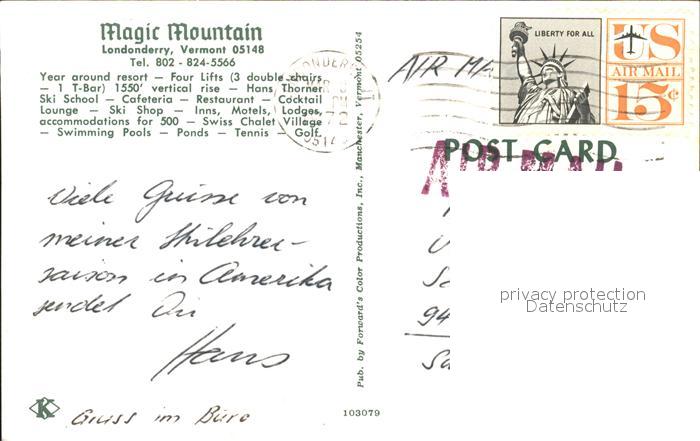 Magic Mountain
Londonderry, Vermont 05148
Tel. 802 - 824-5566
Year around resort — Four Lifts (3 double chairs
— 1 T-Bar) 1550' vertical rise — Hans Thorner
Ski School — Cafeteria — Restaurant — Cocktail
Lounge — Ski Shop — Inns, Motels, Lodges,
accommodations for 500 — Swiss Chalet Village
— Swimming Pools — Ponds — Tennis — Golf.
AIR MA
LIBERTY FOR ALL
US
AIR MAIL
15¢
POST CARD
Viele Grüsse von
meiner Skilehrer-
saison in Amerika
sendet Dir
Hans
Gruss im Büro
Pub. by Forward's Color Productions, Inc., Manchester, Vermont 05254
103079
K
94
privacy protection
Datenschutz